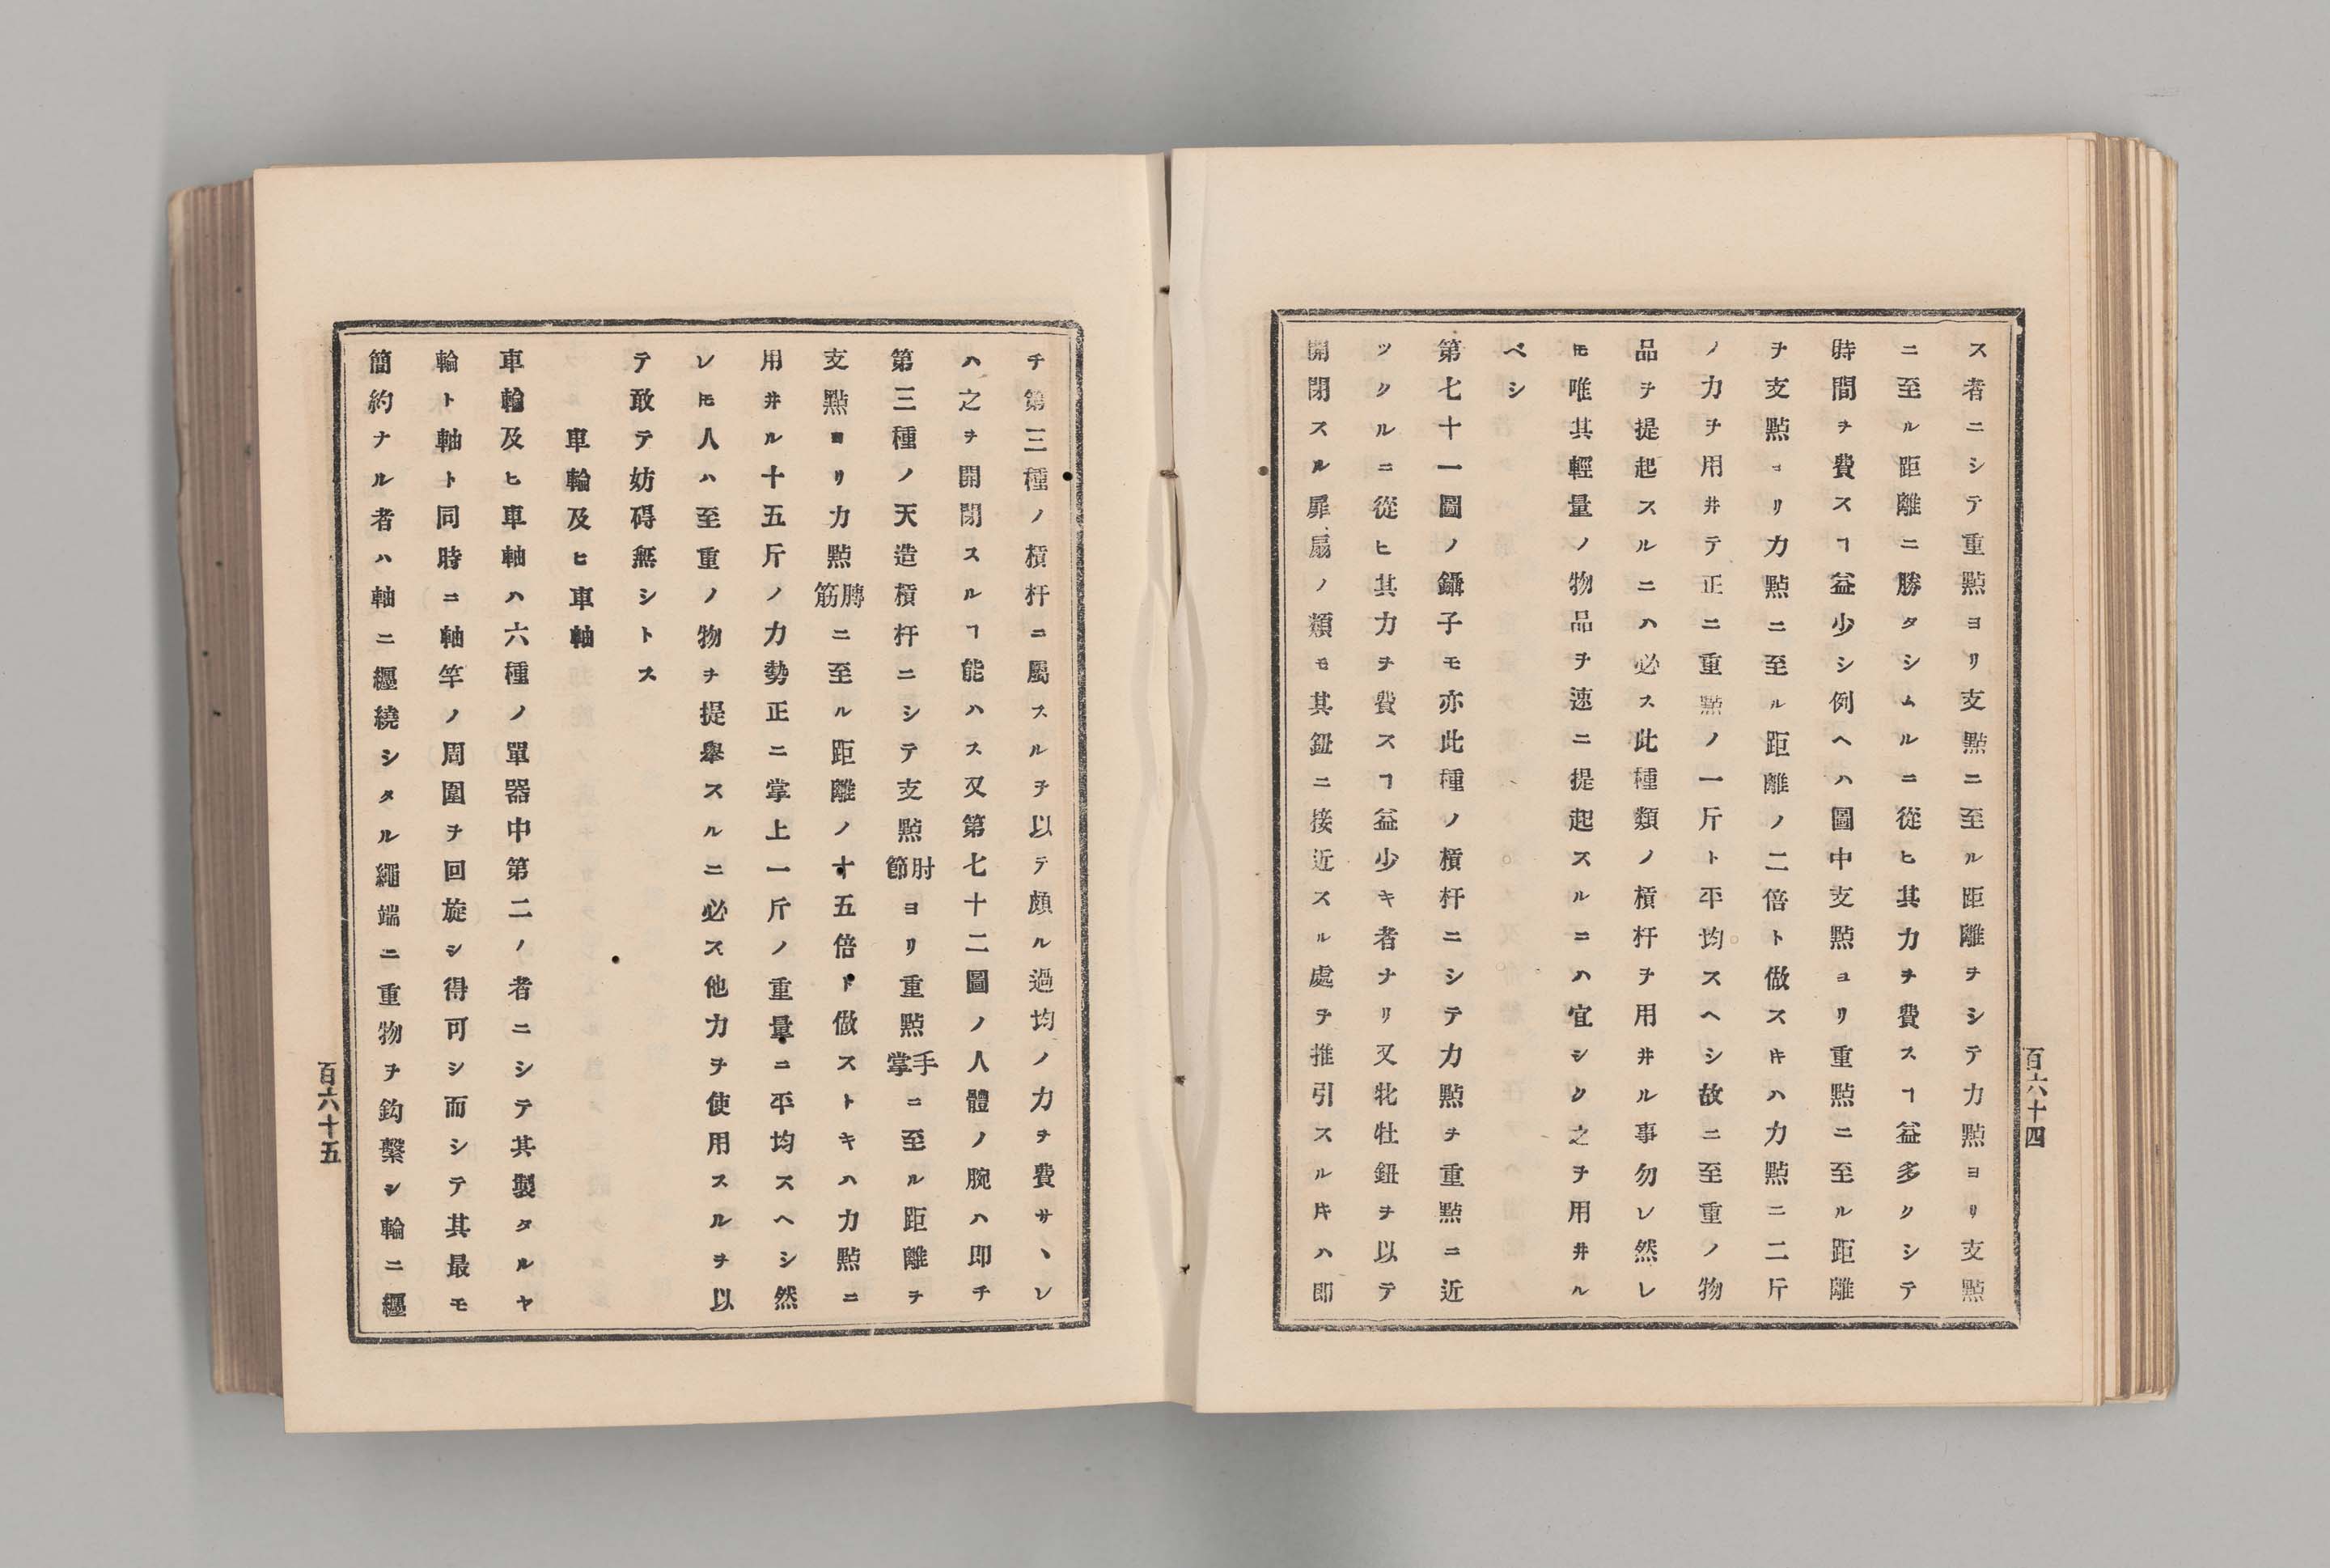 ス者ニシテ重點ヨリ支點ニ至ル距離ヲシテ力點ヨリ支點
ニ至ル距離ニ勝タシムルニ從ヒ其力ヲ費スヿ益多クシテ
時間ヲ費スヿ益少シ例ヘハ圖中支點ヨリ重點ニ至ル距離
ヲ支點ヨリ力點ニ至ル距離ノ二倍ト倣スキハ力點ニ二斤
ノ力ヲ用井テ正ニ重點ノ一斤ト平均スヘシ故ニ至重ノ物
品ヲ提起スルニハ必ス此種類ノ槓杆ヲ用井ル事勿レ然レ
𪜈唯其輕量ノ物品ヲ速ニ提起スルニハ宜シク之ヲ用井ル
ベシ
第七十一圖ノ鑷子モ亦此種ノ槓杆ニシテ力點ヲ重點ニ近
ツクルニ從ヒ其力ヲ費スヿ益少キ者ナリ又牝牡鈕ヲ以テ
開閉スル扉扇ノ類モ其鈕ニ接近スル處ヲ推引スル𪜈ハ即
百六十四
チ第三種ノ槓杆ニ屬スルヲ以テ頗ル過均ノ力ヲ費サヽレ
ハ之ヲ開閉スルヿ能ハス又第七十二圖ノ人體ノ腕ハ即チ
第三種ノ天造槓杆ニシテ支點肘節ヨリ重點手掌ニ至ル距離ヲ
支點ヨリ力點膊筋ニ至ル距離ノ十五倍ト倣ストキハ力點ニ
用井ル十五斤ノ力勢正ニ掌上一斤ノ重量ニ平均スヘシ然
レ𪜈人ハ至重ノ物ヲ提舉スルニ必ス他力ヲ使用スルヲ以
テ敢テ妨碍無シトス
車輪及ヒ車軸
車輪及ヒ車軸ハ六種ノ單器中第二ノ者ニシテ其製タルヤ
輪ト軸ト同時ニ軸竿ノ周圍ヲ回旋シ得可シ而シテ其最モ
簡約ナル者ハ軸ニ纒繞シタル繩端ニ重物ヲ鈎繫シ輪ニ纒
百六十五